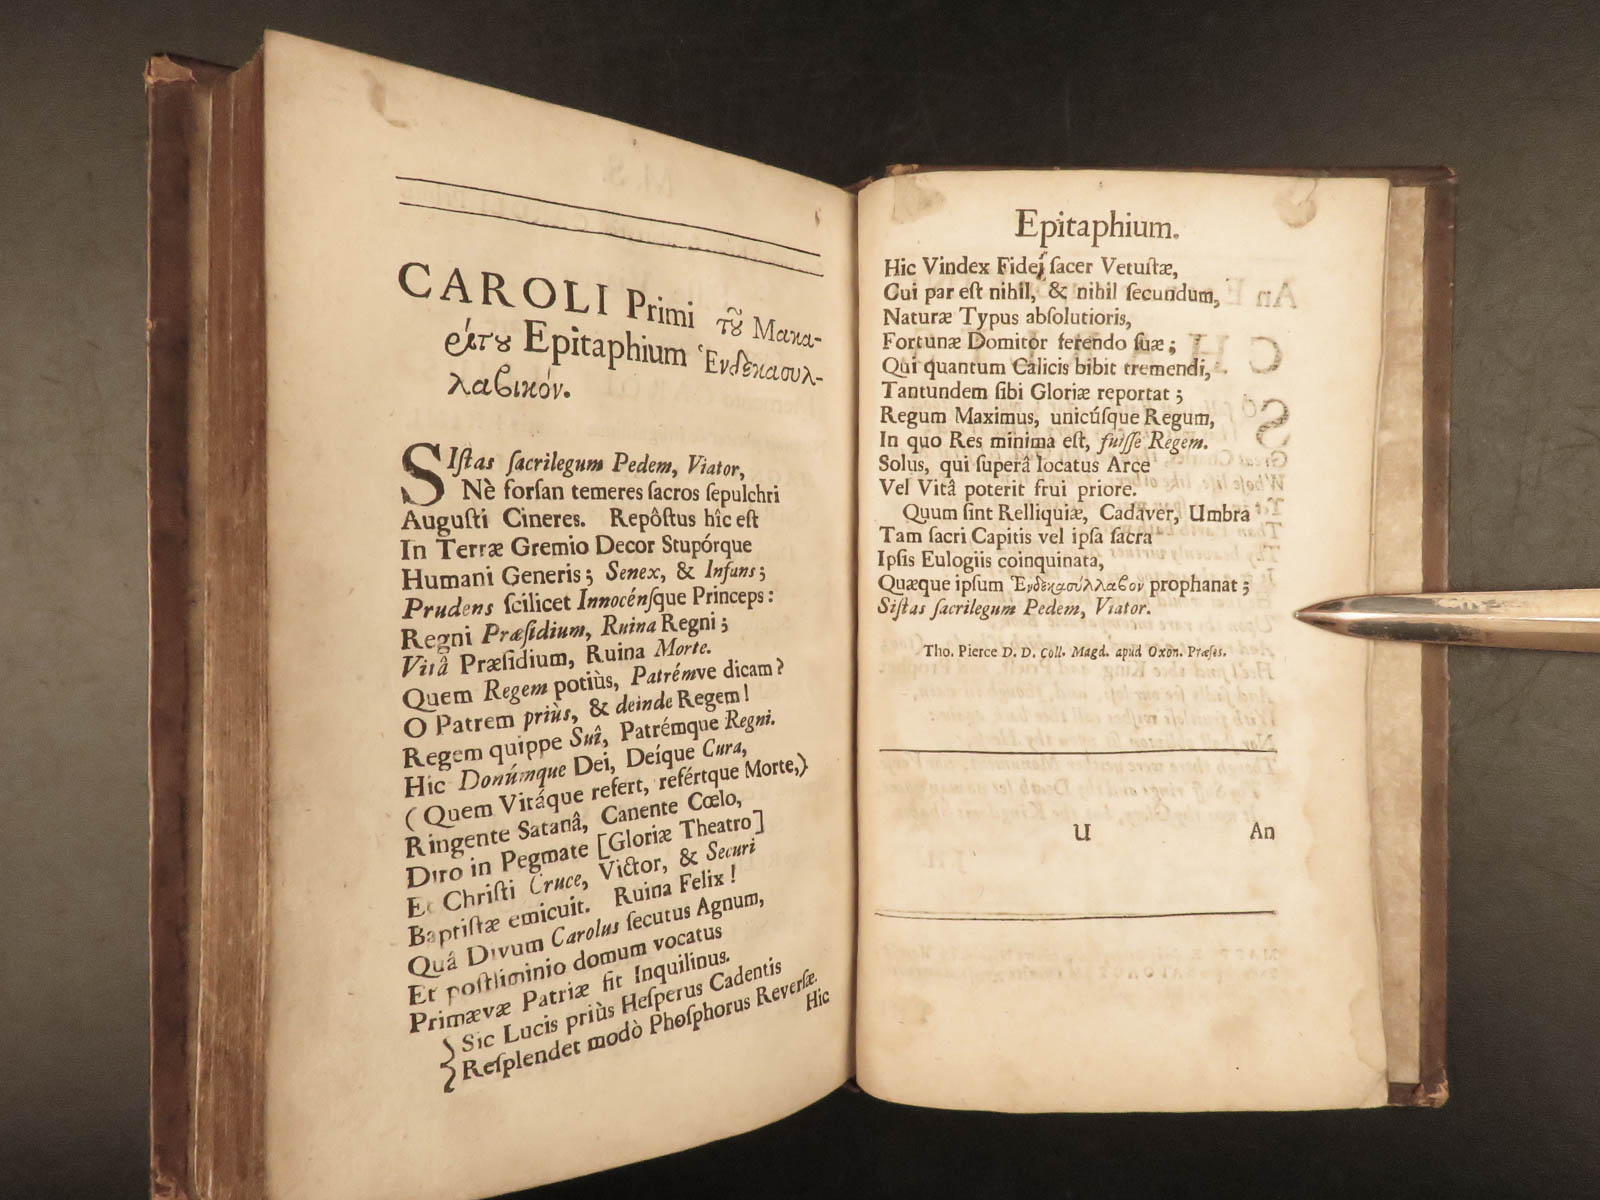 CAROLI Primi τȣ̃ Μακα-
ρίτȣ Epitaphium Ἑνδεκασυλ-
λαβικόν.
SIſtas ſacrilegum Pedem, Viator,
Nè forſan temeres ſacros ſepulchri
Auguſti Cineres. Repôſtus hîc eſt
In Terræ Gremio Decor Stupórque
Humani Generis; Senex, & Infans;
Prudens ſcilicet Innocénſque Princeps:
Regni Præſidium, Ruina Regni;
Vitâ Præſidium, Ruina Morte.
Quem Regem potiùs, Patrémve dicam?
O Patrem priùs, & deinde Regem!
Regem quippe Suî, Patrémque Regni.
Hic Donúmque Dei, Deíque Cura,
(Quem Vitáque refert, refértque Morte,)
Ringente Satanâ, Canente Cœlo,
Diro in Pegmate [Gloriæ Theatro]
Et Chriſti Cruce, Victor, & Securi
Baptiſtæ emicuit. Ruina Felix!
Quâ Divum Carolus ſecutus Agnum,
Et poſtliminio domum vocatus
Primævæ Patriæ fit Inquilinus.
Sic Lucis priùs Heſperus Cadentis
Reſplendet modò Phoſphorus Reverſæ.
Hic
Epitaphium.
Hic Vindex Fidei ſacer Vetuſtæ,
Cui par eſt nihil, & nihil ſecundum,
Naturæ Typus abſolutioris,
Fortunæ Domitor ferendo ſuæ;
Qui quantum Calicis bibit tremendi,
Tantundem ſibi Gloriæ reportat;
Regum Maximus, unicúſque Regum,
In quo Res minima eſt, fuiſſe Regem.
Solus, qui ſuperâ locatus Arce
Vel Vitâ poterit frui priore.
Quum ſint Relliquiæ, Cadaver, Umbra
Tam ſacri Capitis vel ipſa ſacra
Ipſis Eulogiis coinquinata,
Quæque ipſum Ἑνδεκασύλλαβον prophanat;
Siſtas ſacrilegum Pedem, Viator.
Tho. Pierce D. D. Coll. Magd. apud Oxon. Præſes.
U An